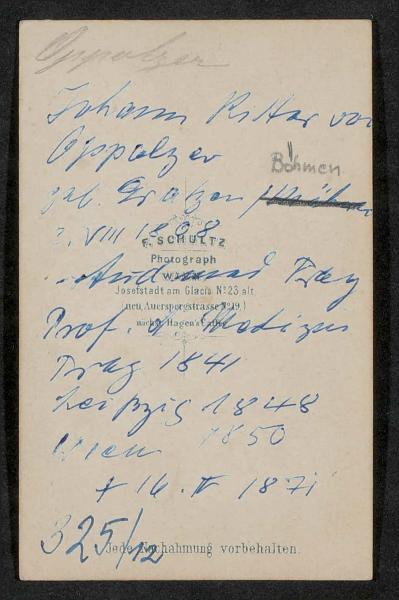 Oppolzer
Johann Ritter von
Oppolzer
Böhmen
geb. Gratzen /
2. VIII 1808
F. SCHULTZ
Photograph
WIEN
Josefstadt am Glacis No 23 alt
(neu, Auerspergstrasse No 19.)
nächst Hagen's Caffé
Stud. med Prag
Prof. d. Medizin
Prag 1841
Leipzig 1848
Wien 1850
† 16. IV 1871
325/12
Jede Nachahmung vorbehalten.